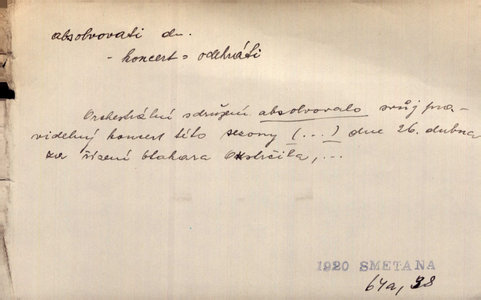 absolvovati dn.
- koncert = odehráti
Orchestrální sdružení absolvovalo svůj pra-
videlný koncert této sezony (...) dne 26. dubna
za řízení Otakara Ostrčila, ...
1920 SMETANA
64a, 38